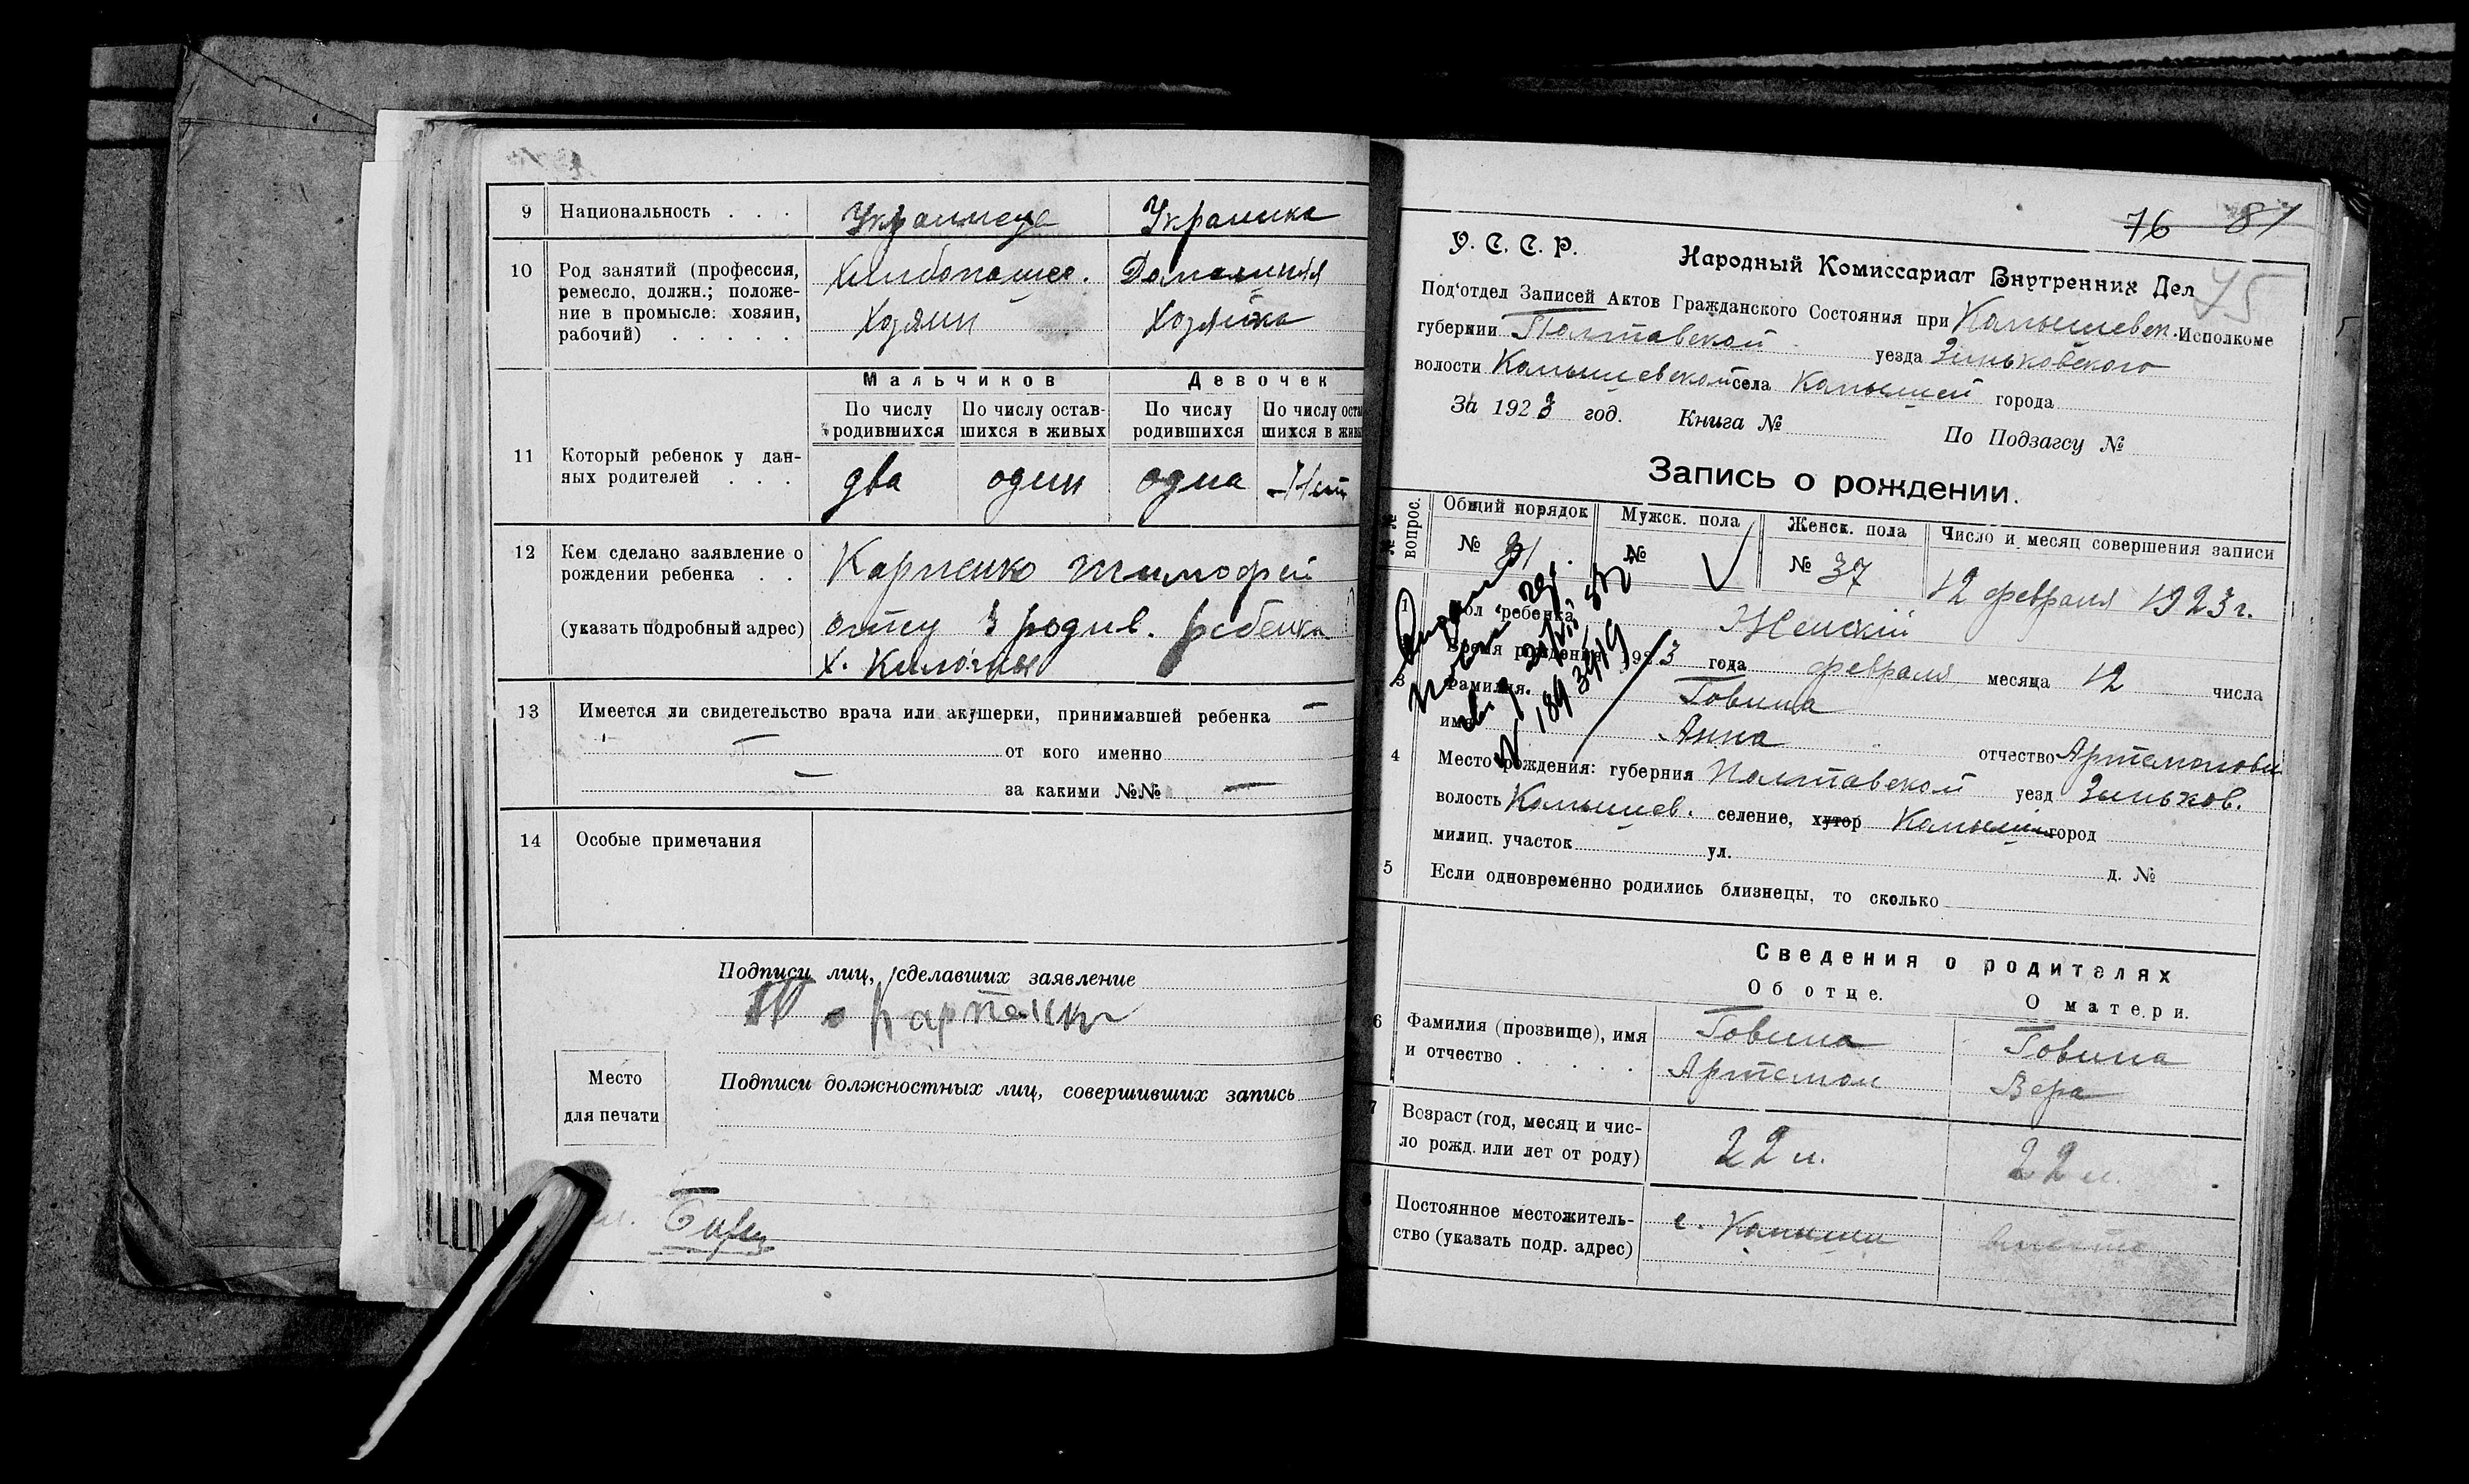 9 Национальность . . . Украинець Украинка
10 Род занятий (профессия, Хлибопашес. Домашняя
ремесло, должн.; положе-
ние в промысле: хозяин, Хозяин Хозяйка
рабочий) . . . . .
Мальчиков Девочек
По числу родившихся По числу остав- шихся в живых По числу родившихся По числу оста шихся в живы
11 Который ребенок у дан-
ных родителей . . . два один одна Нет
12 Кем сделано заявление о
рождении ребенка . . Карпенко Тимофей
(указать подробный адрес) отец родив. ребенка
х.
13 Имеется ли свидетельство врача или акушерки, принимавшей ребенка —
— от кого именно
— за какими №№ —
14 Особые примечания
Подписи лиц, сделавших заявление
Карпенко
Место
для печати
Подписи должностных лиц, совершивших запись
76 81
75
У. С. С. Р. Народный Комиссариат Внутренних Дел
Под'отдел Записей Актов Гражданского Состояния при Камышевск. Исполкоме
губернии Полтавской уезда Зиньковского
волости Камышевской села Камышей города
За 1923 год. Книга № По Подзагсу №
Запись о рождении.
№№ вопрос. Общий порядок Мужск. пола Женск. пола Число и месяц совершения записи
№ № V № 37 12 февраля 1923 г.
1 Пол ребенка Женский
Время рождения 1923 года февраля месяца 12 числа
3 Фамилия Говина
имя Анна отчество Артемоновн
4 Место рождения: губерния Полтавской уезд Зиньков.
волость Камышев. селение, хутор Камыши город
милиц. участок ул. д. №
5 Если одновременно родились близнецы, то сколько
Сведения о родителях
Об отце. О матери.
6 Фамилия (прозвище), имя Говина Говина
и отчество . . . . . Артемон Вера
7 Возраст (год, месяц и чис-
ло рожд. или лет от роду) 22 л. 22 л.
Постоянное местожитель- с. Камыши вместе
ство (указать подр. адрес)